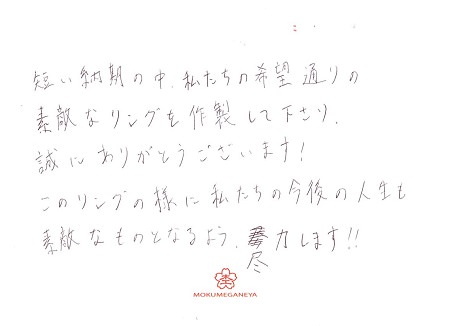 短い納期の中、私たちの希望通りの
素敵なリングを作製して下さり、
誠にありがとうございます!
このリングの様に私たちの今後の人生も
素敵なものとなるよう、尽力します!!
MOKUMEGANEYA